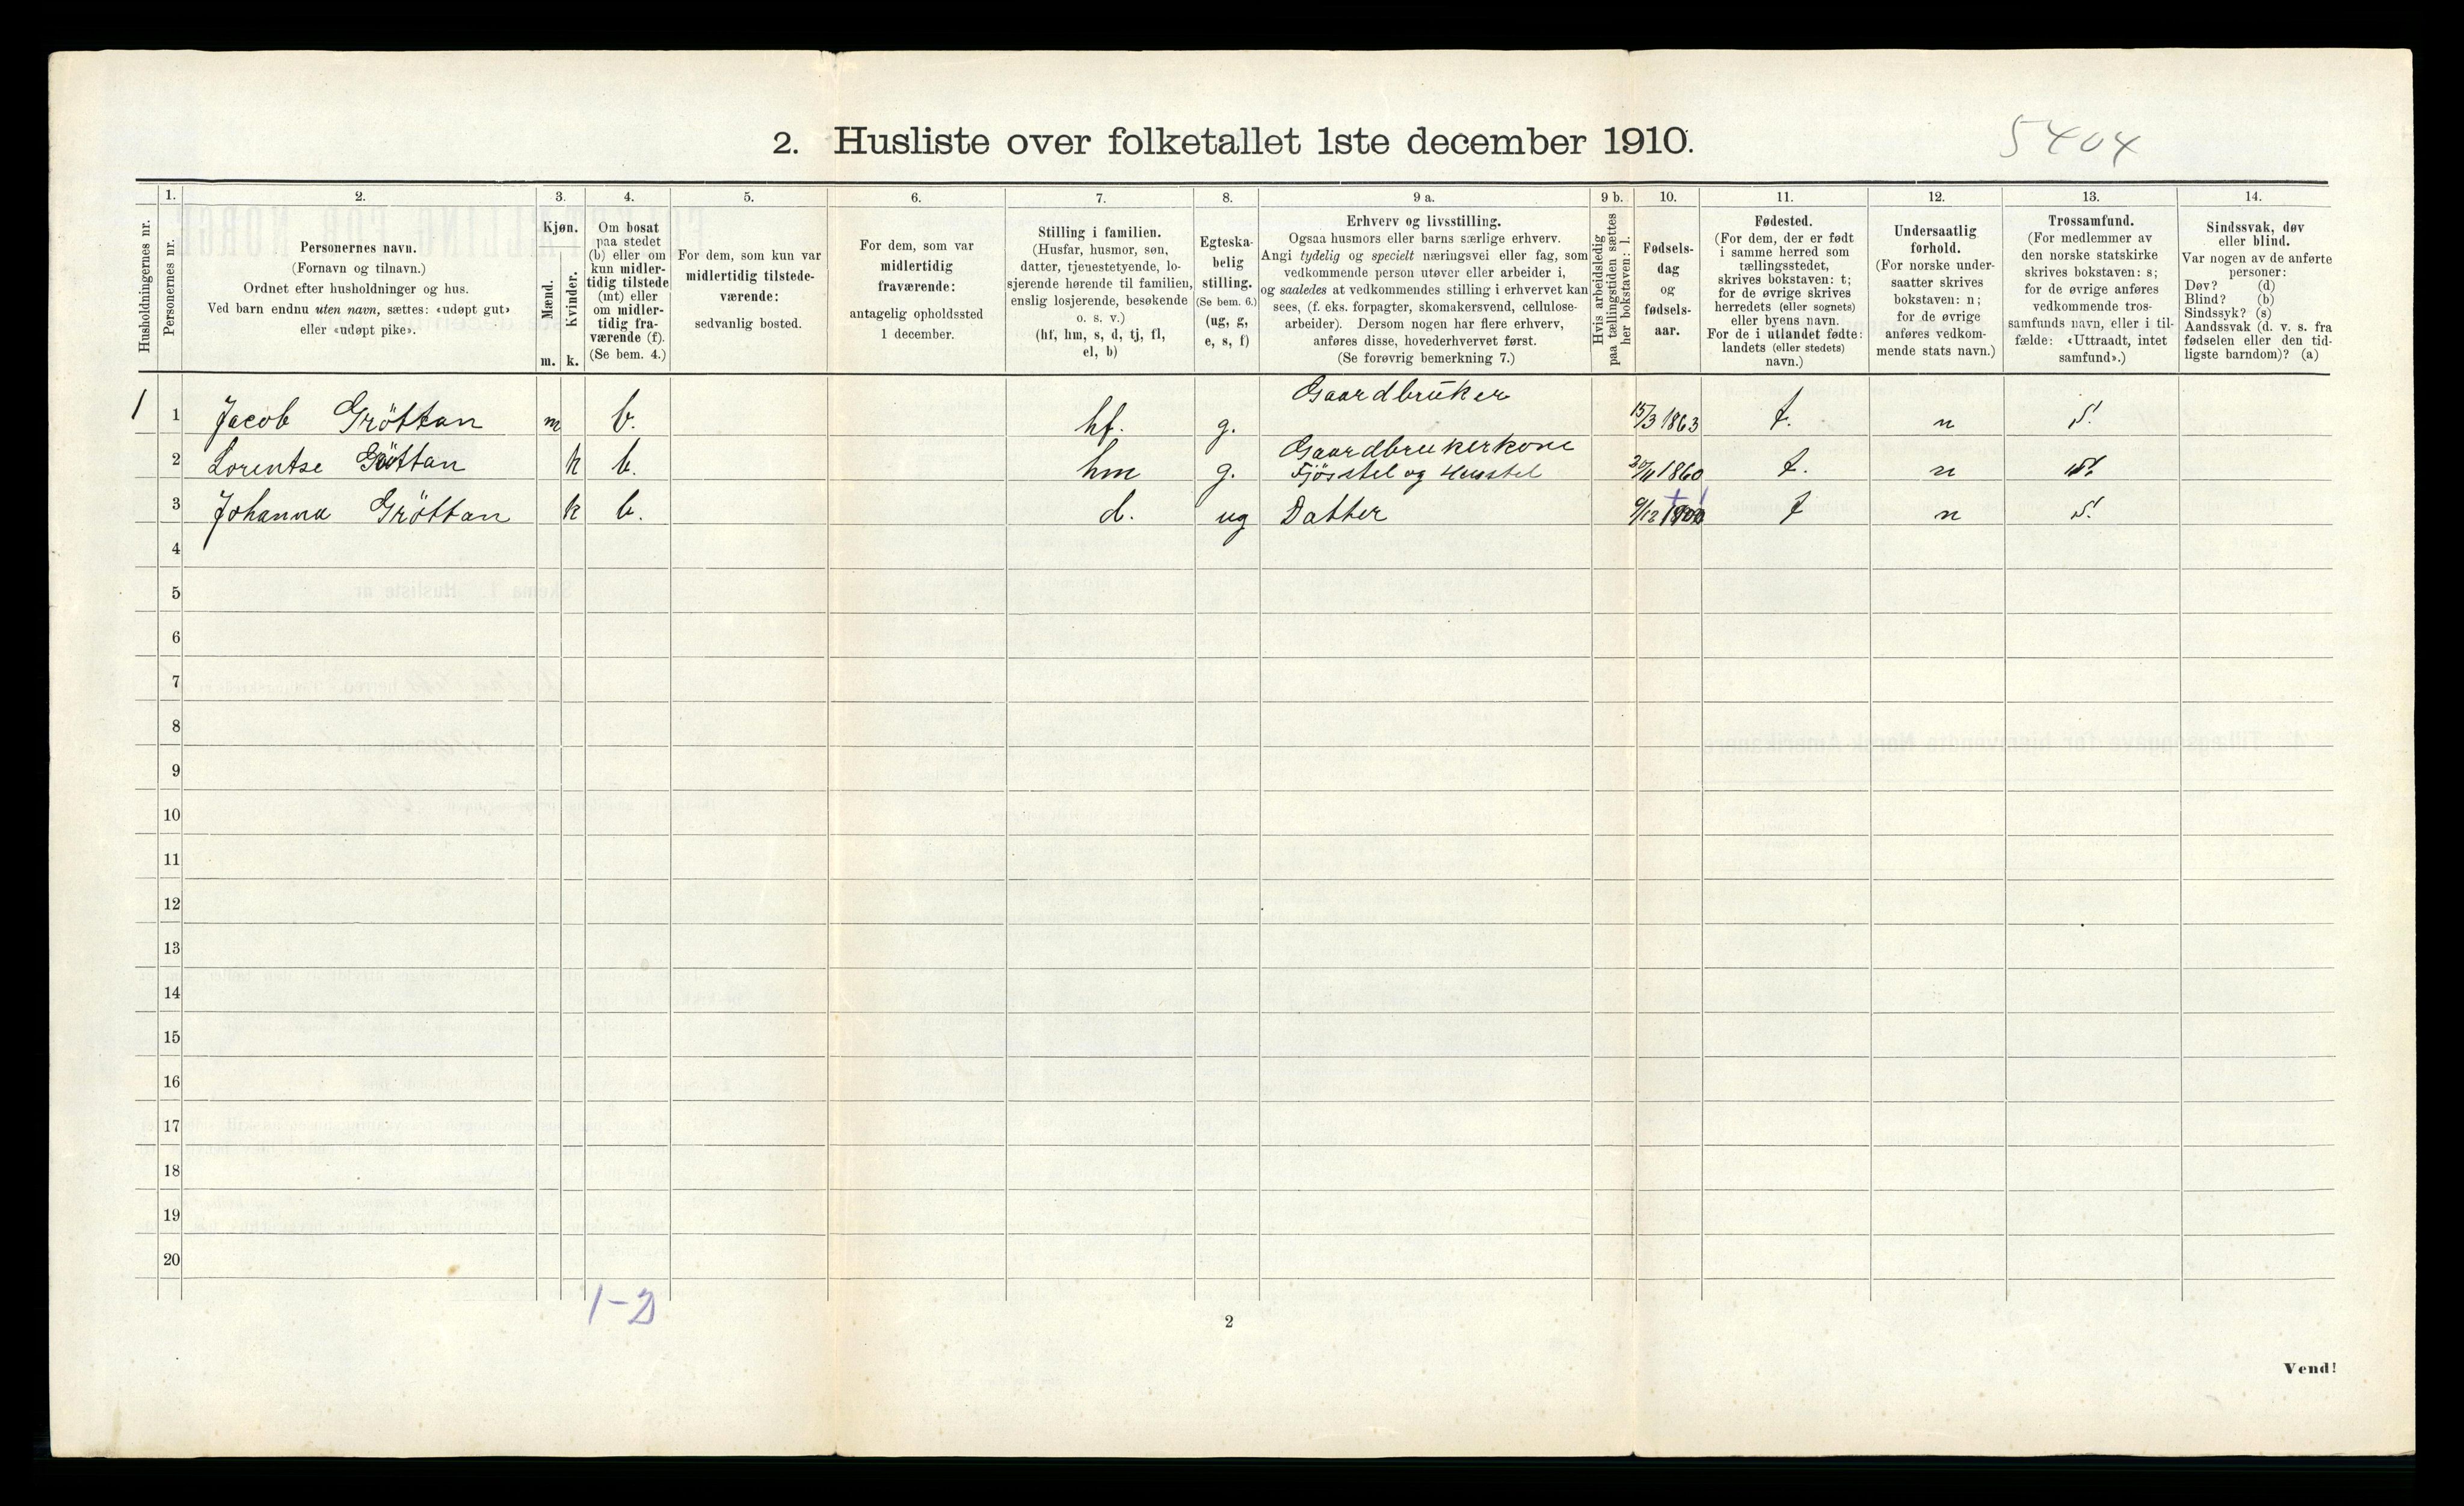 2. Husliste over folketallet 1ste december 1910.
5404
Husholdningernes nr.
1.
Personernes nr.
2.
Personernes navn.
(Fornavn og tilnavn.)
Ordnet efter husholdninger og hus.
Ved barn endnu uten navn, sættes: «udøpt gut»
eller «udøpt pike».
3.
Kjøn.
Mænd.
m.
Kvinder.
k.
4.
Om bosat
paa stedet
(b) eller om
kun midler-
tidig tilstede
(mt) eller
om midler-
tidig fra-
værende (f).
(Se bem. 4.)
5.
For dem, som kun var
midlertidig tilstede-
værende:
sedvanlig bosted.
6.
For dem, som var
midlertidig
fraværende:
antagelig opholdssted
1 december.
7.
Stilling i familien.
(Husfar, husmor, søn,
datter, tjenestetyende, lo-
sjerende hørende til familien,
enslig losjerende, besøkende
o. s. v.)
(hf, hm, s, d, tj, fl,
el, b)
8.
Egteska-
belig
stilling.
(Se bem. 6.)
(ug, g,
e, s, f)
9 a.
Erhverv og livsstilling.
Ogsaa husmors eller barns særlige erhverv.
Angi tydelig og specielt næringsvei eller fag, som
vedkommende person utøver eller arbeider i,
og saaledes at vedkommendes stilling i erhvervet kan
sees, (f. eks. forpagter, skomakersvend, cellulose-
arbeider). Dersom nogen har flere erhverv,
anføres disse, hovederhvervet først.
(Se forøvrig bemerkning 7.)
9 b.
Hvis arbeidsledig
paa tællingstiden sættes
her bokstaven: l.
10.
Fødsels-
dag
og
fødsels-
aar.
11.
Fødested.
(For dem, der er født
i samme herred som
tællingsstedet,
skrives bokstaven: t;
for de øvrige skrives
herredets (eller sognets)
eller byens navn.
For de i utlandet fødte:
landets (eller stedets)
navn.)
12.
Undersaatlig
forhold.
(For norske under-
saatter skrives
bokstaven: n;
for de øvrige
anføres vedkom-
mende stats navn.)
13.
Trossamfund.
(For medlemmer av
den norske statskirke
skrives bokstaven: s;
for de øvrige anføres
vedkommende tros-
samfunds navn, eller i til-
fælde: «Uttraadt, intet
samfund».)
14.
Sindssvak, døv
eller blind.
Var nogen av de anførte
personer:
Døv? (d)
Blind? (b)
Sindssyk? (s)
Aandssvak (d. v. s. fra
fødselen eller den tid-
ligste barndom)? (a)
1 1 Jacob Gröttan m b. hf. g. Gaardbruker 15/3 1863 t. n s.
2 Lorentse Gröttan k b. hm g. Gaardbrukerkone
Fjösstel og Husstel 20/11 1860 t. n s.
3 Johanna Gröttan k b. d. ug Datter 9/12 t n s.
4
5
6
7
8
9
10
11
12
13
14
15
16
17
18
19
20
1-2
2
Vend!